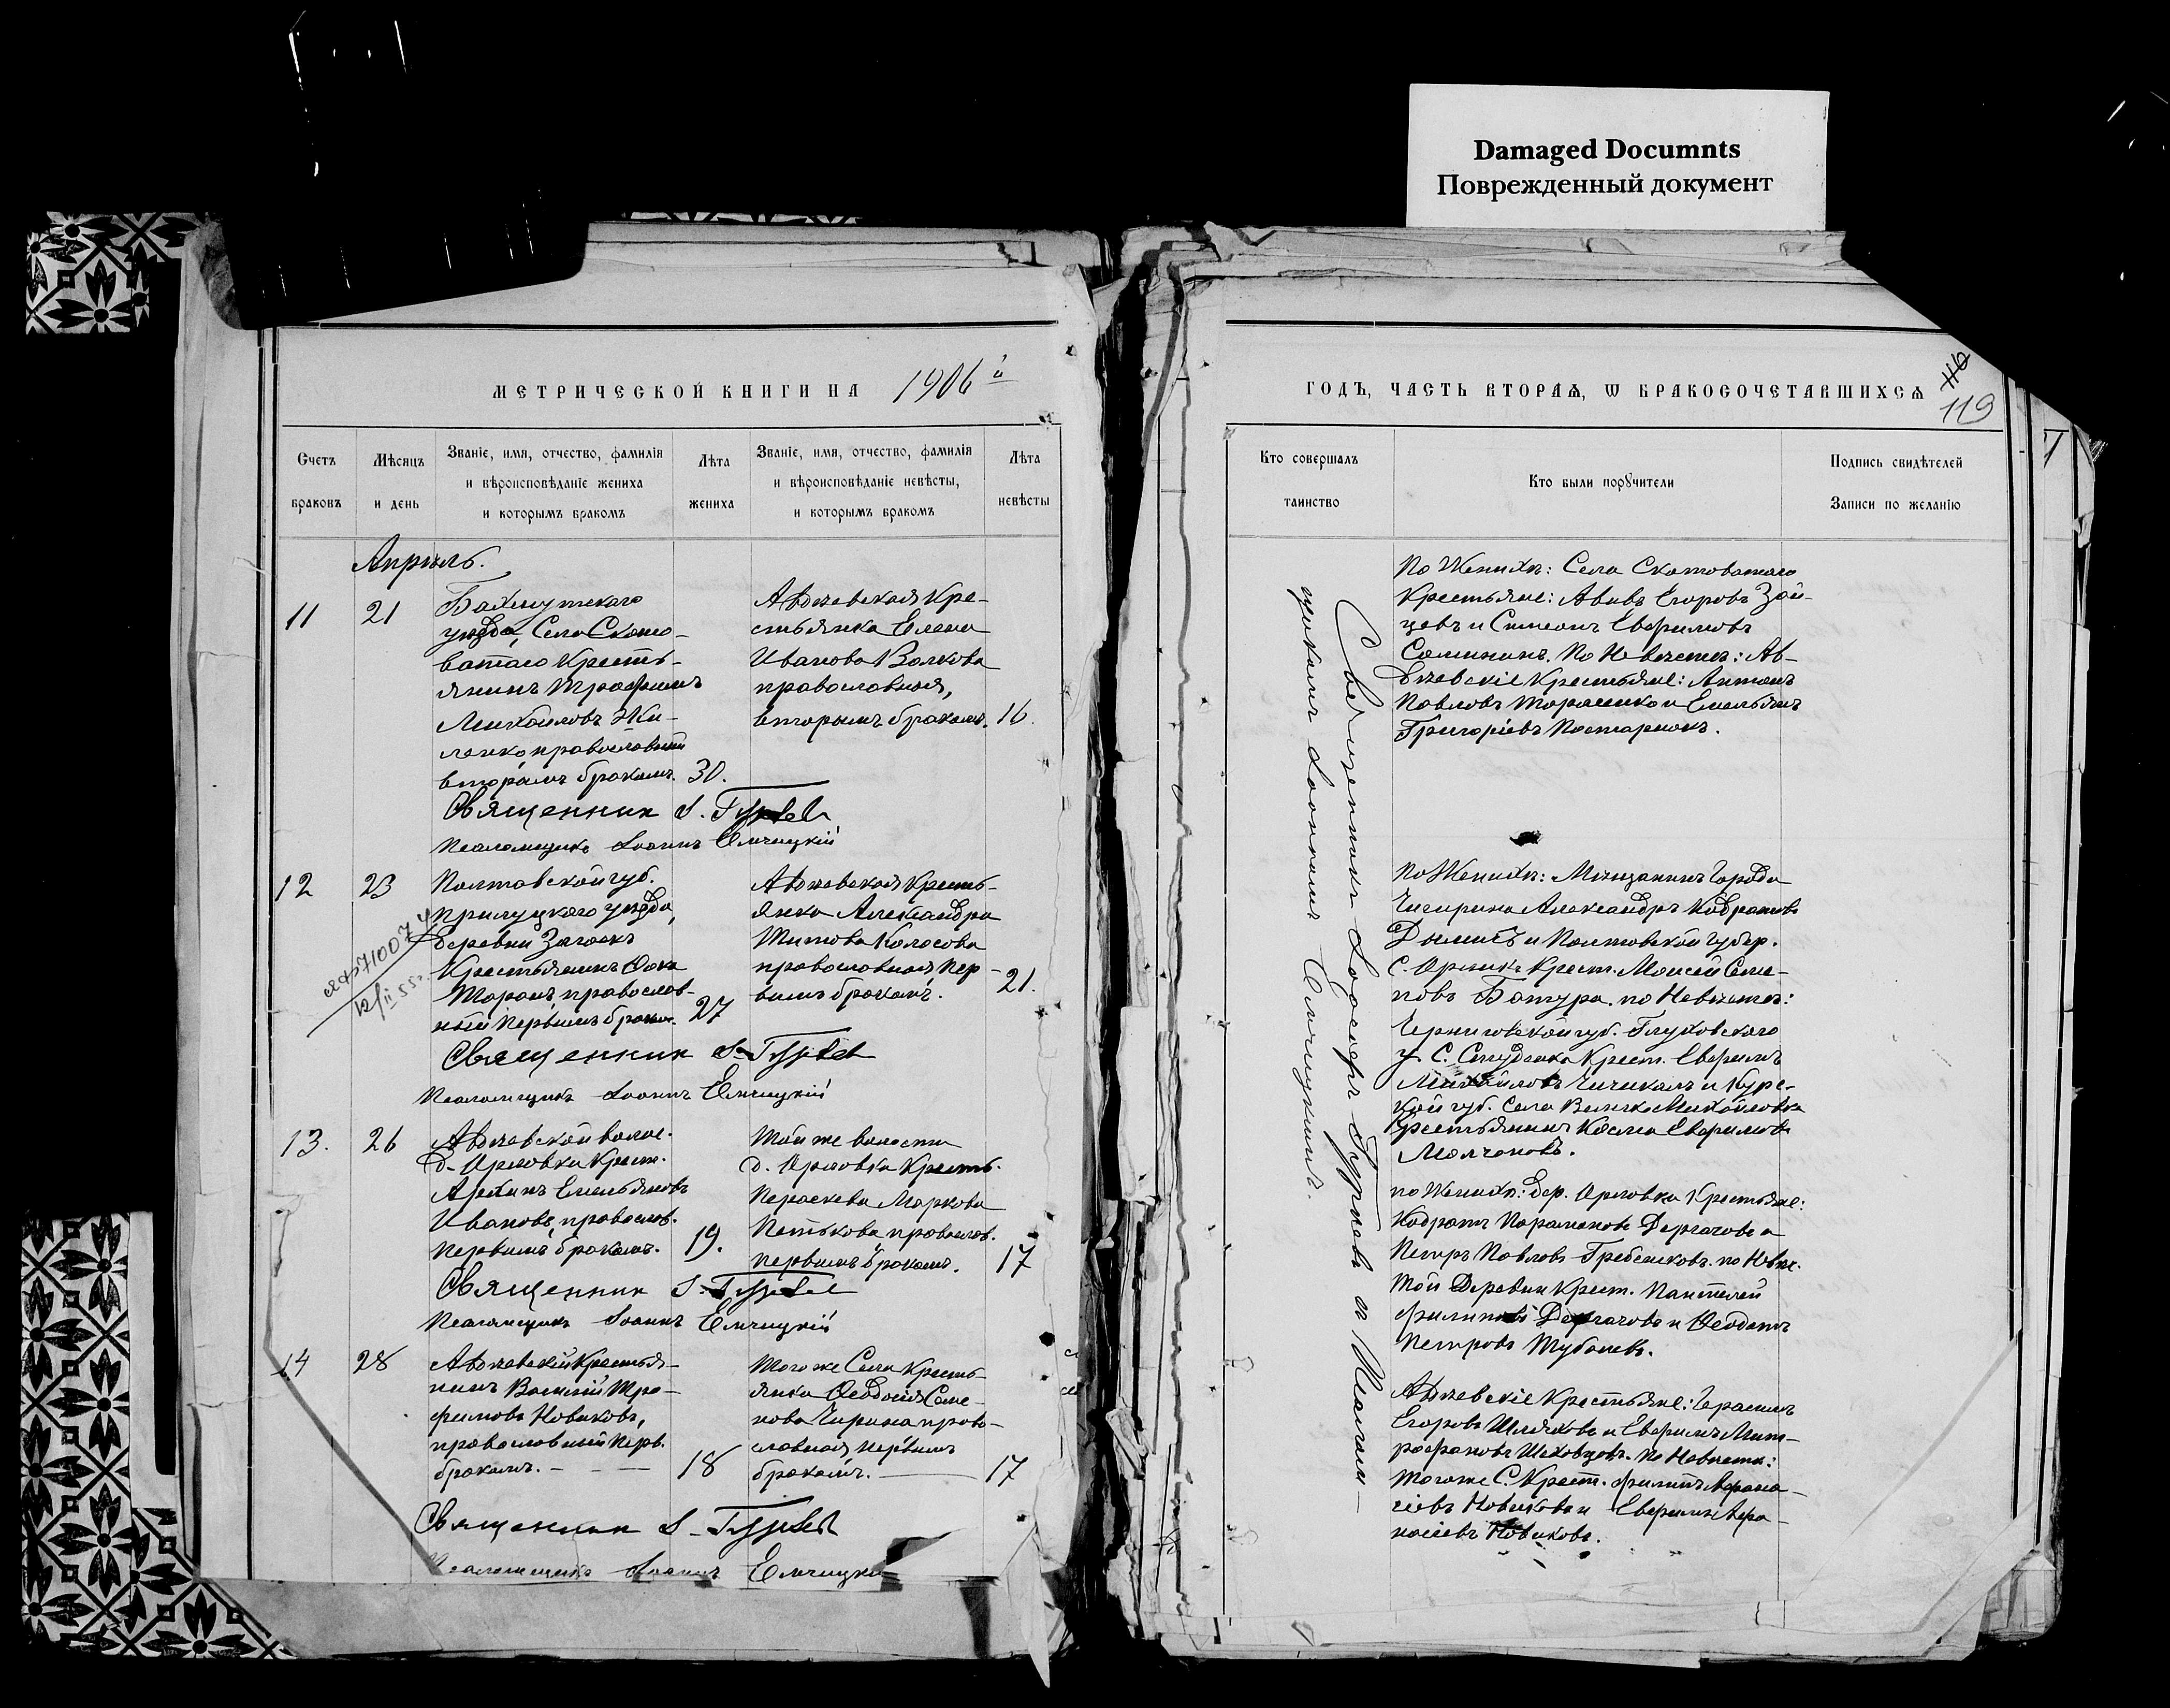 Damaged Documnts
Поврежденный документ
МЕТРИЧЕСКОЙ КНИГИ НА 1906й
Счетъ браковъ
Мѣсяцъ и день
Званіе, имя, отчество, фамилія
и вѣроисповѣданіе жениха
и которымъ бракомъ
Лѣта жениха
Званіе, имя, отчество, фамилія
и вѣроисповѣданіе невѣсты,
и которымъ бракомъ
Лѣта невѣсты
Апрѣль.
11
21
Бахмутскаго
уѣзда, Села Ското-
ватаго Кресть-
янинъ Трофимъ
Михайловъ Жи-
ленко, православный
вторымъ бракомъ. 30.
Авдѣевская Кре-
стьянка Елена
Иванова Волкова
православная,
вторымъ бракомъ. 16.
Священник І. Гурьев
Псаломщикъ Іоаннъ Емчицкій
12
23
Полтавской губ.
Прилуцкого уѣзда,
Деревни
Крестьянинъ
Таранъ, православ-
ный первымъ бракомъ. 27
Авдѣевская Кресть-
янка Александра
Титова Колосова
православная, пер-
вымъ бракомъ. 21.
Священник І. Гурьев
Псаломщикъ Іоаннъ Емчицкій
13.
26
Авдѣевской волос.
д. Орловка Крест.
Архипъ Емельяновъ
Ивановъ, православ.
первымъ бракомъ. 19.
Той же волости
д. Орловка Кресть.
Параскева Маркова
Петькова, православ.
первымъ бракомъ. 17
Священник І. Гурьев
Псаломщикъ Іоаннъ Емчицкій
14
28
Авдѣевскій Крестья-
нинъ Василій Тро-
фимовъ Новиковъ,
православный перв.
бракомъ. - 18
Того же Села Кресть-
янка Ѳеодосія Семе-
нова Чирина право-
славная, первымъ
бракомъ. 17
Священник І. Гурьев
Псаломщикъ Іоаннъ Емчицкі
ГОДЪ, ЧАСТЬ ВТОРАЯ, Ѡ БРАКОСОЧЕТАВШИХСЯ
116
119
Кто совершалъ таинство
Кто были порꙋчители
Подпись свидѣтелей
Записи по желанію
Священникъ Іосифъ Гурьевъ съ Псалом-
щикомъ Іоанномъ Емчицкимъ.
По Женихѣ: Села Скотоватаго
Крестьяне: Егоровъ Зай-
цевъ и Симеонъ Евфимовъ
По Невѣстѣ: Ав-
дѣевскіе Крестьяне: Антонъ
Павловъ Тарасенко и Емельянъ
Григорьевъ
По Женихѣ: Мѣщанинъ Города
Чигирина Александръ Кодратовъ
и Полтавской губер.
Крест. Моисей Семе-
новъ Батура. по Невѣстѣ:
Черниговской губ. Глуховского
у. С. Студенка Крест. Евфимъ
Михайловъ Чичикалъ и Кур-
ской губ. Села Михайловка
Крестьянинъ Косма Евфимов
Молчановъ.
по Женихѣ: дер. Орловка Крестьяне:
Кодратъ Парамоновъ Дергачовъ и
Петръ Павловъ Гребенковъ. по Невѣс.
той Деревни Крест. Пантелей
Филиповъ Дергачовъ и Ѳеодотъ
Петровъ
Авдѣевскіе Крестьяне: Герасимъ
Егоровъ Шляховъ и Евфимъ Мит-
рофановъ Шеховцовъ. По Невѣстѣ:
Того же С. Крест. Филиппъ Афана-
сіевъ Новиковъ и Евфимъ Афа-
насіевъ Новиковъ.